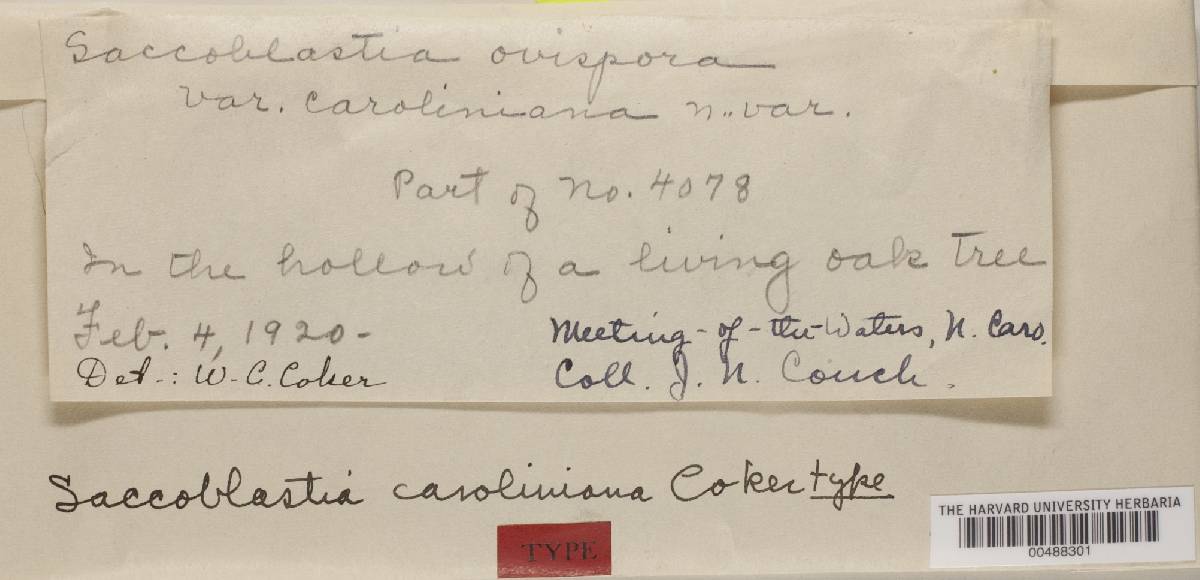 Saccoblastia ovispora
var. caroliniana n. var.
Part of No. 4078
In the hollow of a living oak tree
Feb. 4, 1920-
Meeting-of-the-Waters, N. Caro.
Det.: W. C. Coker
Coll. J. N. Couch.
Saccoblastia caroliniana Coker type
THE HARVARD UNIVERSITY HERBARIA
00488301
TYPE